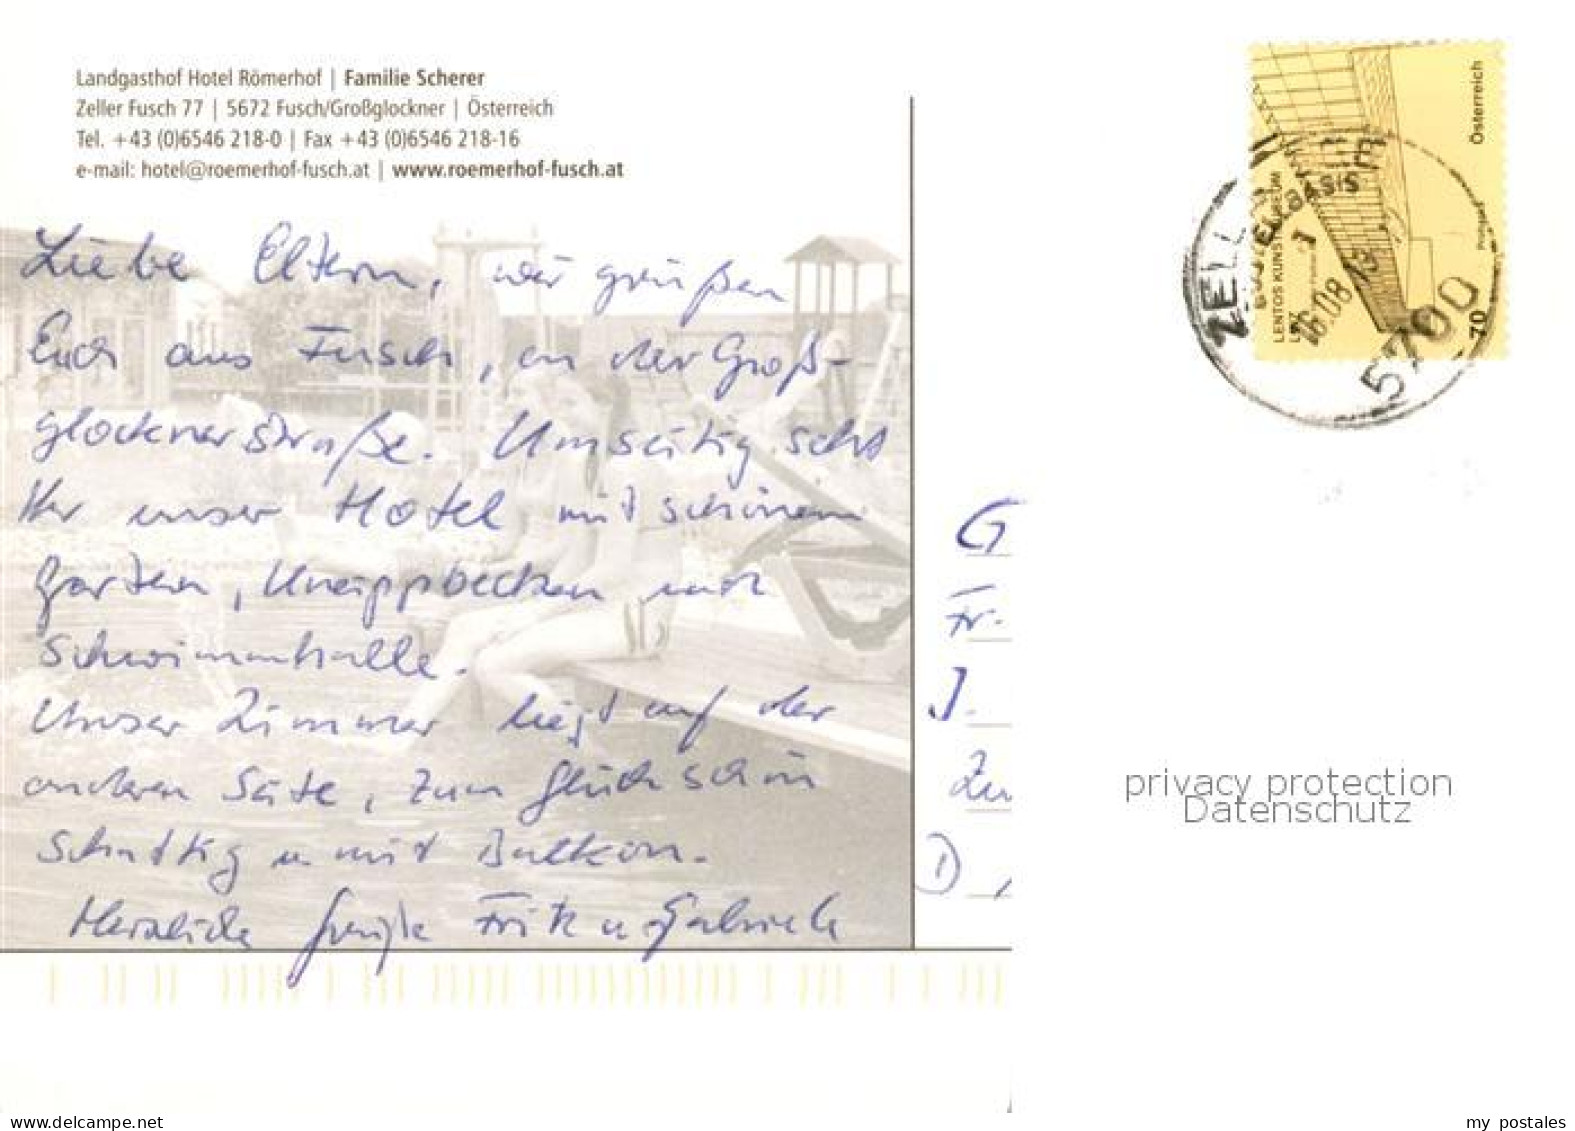 Landgasthof Hotel Römerhof | Familie Scherer
Zeller Fusch 77 | 5672 Fusch/Großglockner | Österreich
Tel. +43 (0)6546 218-0 | Fax +43 (0)6546 218-16
e-mail: hotel@roemerhof-fusch.at | www.roemerhof-fusch.at
Liebe Eltern, wir grüßen
Euch aus Fusch, an der Groß-
glocknerstraße. Umseitig seht
Ihr unser Hotel mit schönem
Garten, Kneippbecken und
Schwimmhalle.
Unser Zimmer liegt auf der
anderen Seite, zum Glück schön
schattig u. mit Balkon.
Herzliche Grüße Fritz u. Gabriele
Österreich
LENTOS KUNSTMUSEUM
LINZ
70
ZELL AM
POSTLERBASIS
5700
G
Fr.
J.
Zu
D
privacy protection
Datenschutz
delcampe.net
my postales